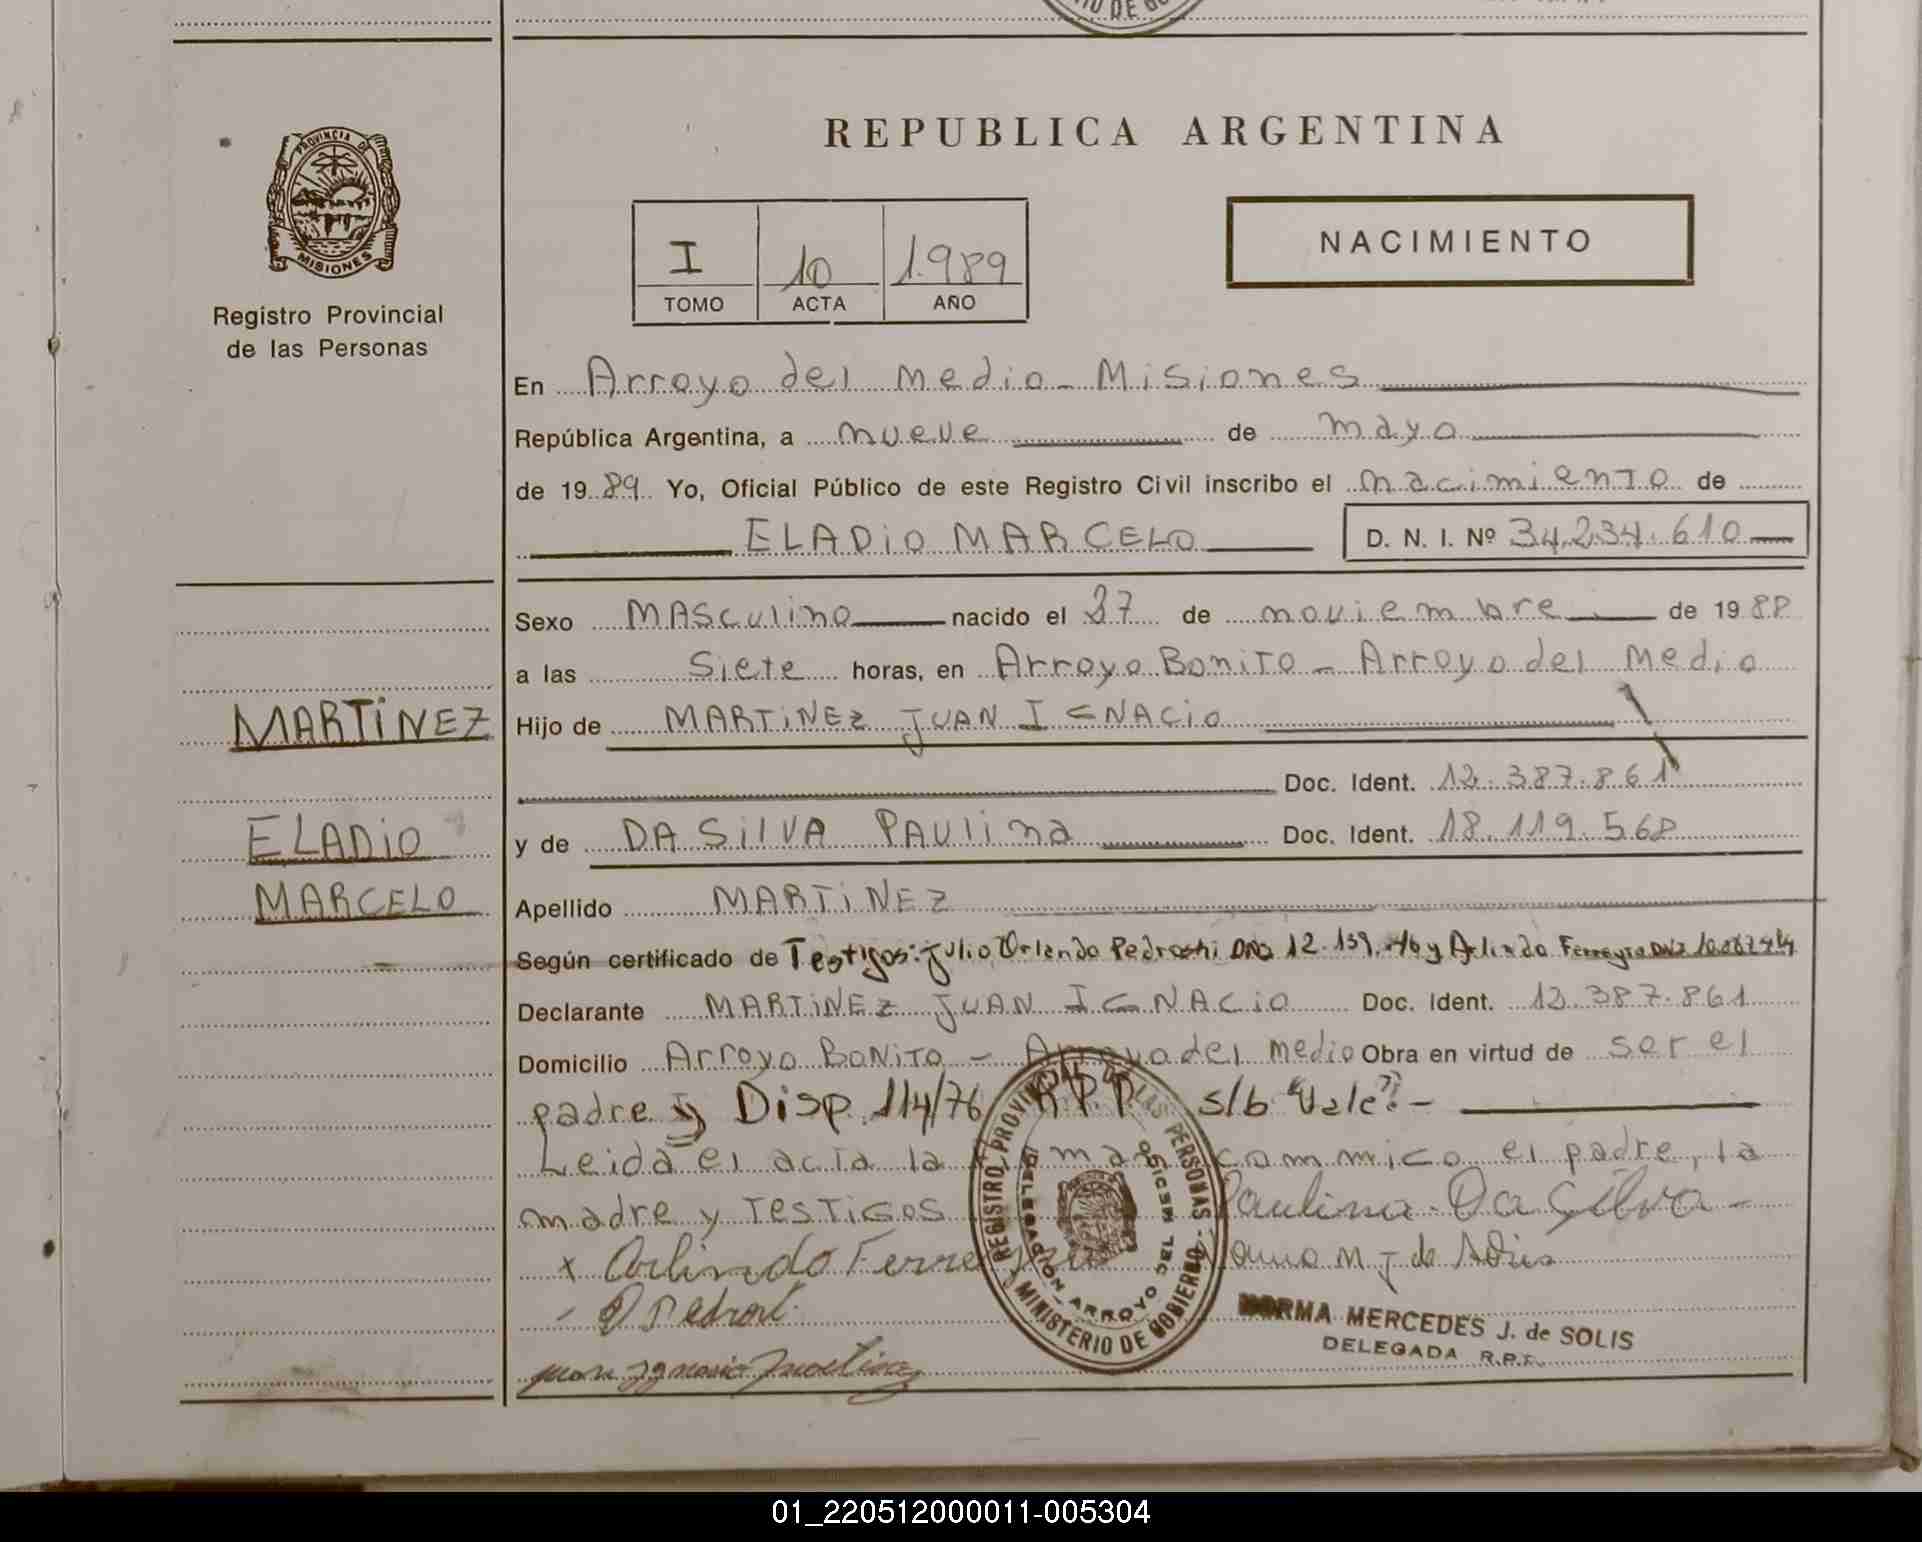 PROVINCIA DE
MISIONES
Registro Provincial
de las Personas
REPUBLICA ARGENTINA
I 10 1.989
TOMO ACTA AÑO
NACIMIENTO
En Arroyo del Medio - Misiones
República Argentina, a nueve de mayo
de 19 89 Yo, Oficial Público de este Registro Civil inscribo el nacimiento de
ELADIO MARCELO D. N. I. Nº 34.234.610
Sexo MASculino nacido el 27 de noviembre de 19 88
a las Siete horas, en Arroyo Bonito - Arroyo del Medio
Hijo de MARTINEZ JUAN IGNACIO
Doc. Ident. 12.387.861
y de DA SILVA PAULina Doc. Ident. 18.119.568
Apellido MARTINEZ
Según certificado de Testigos: Julio Orlando y Arlindo Ferreyra
Declarante MARTINEZ JUAN IGNACIO Doc. Ident. 12.387.861
Domicilio Arroyo BONITO - Arroyo del Medio Obra en virtud de ser el
padre y Disp. 114/76 R.P.P. s/b "Vale"-
Leida el acta la conmigo el padre, la
madre y TESTIGOS Paulina Da Silva -
x Arlindo Ferreyra
juan ygnacio
MARTINEZ
ELADIO
MARCELO
REGISTRO PROVINCIAL DE LAS PERSONAS - MINISTERIO DE GOBIERNO
DELEGACION ARROYO DEL MEDIO
NORMA MERCEDES J. de SOLIS
DELEGADA R.P.P.
01_220512000011-005304